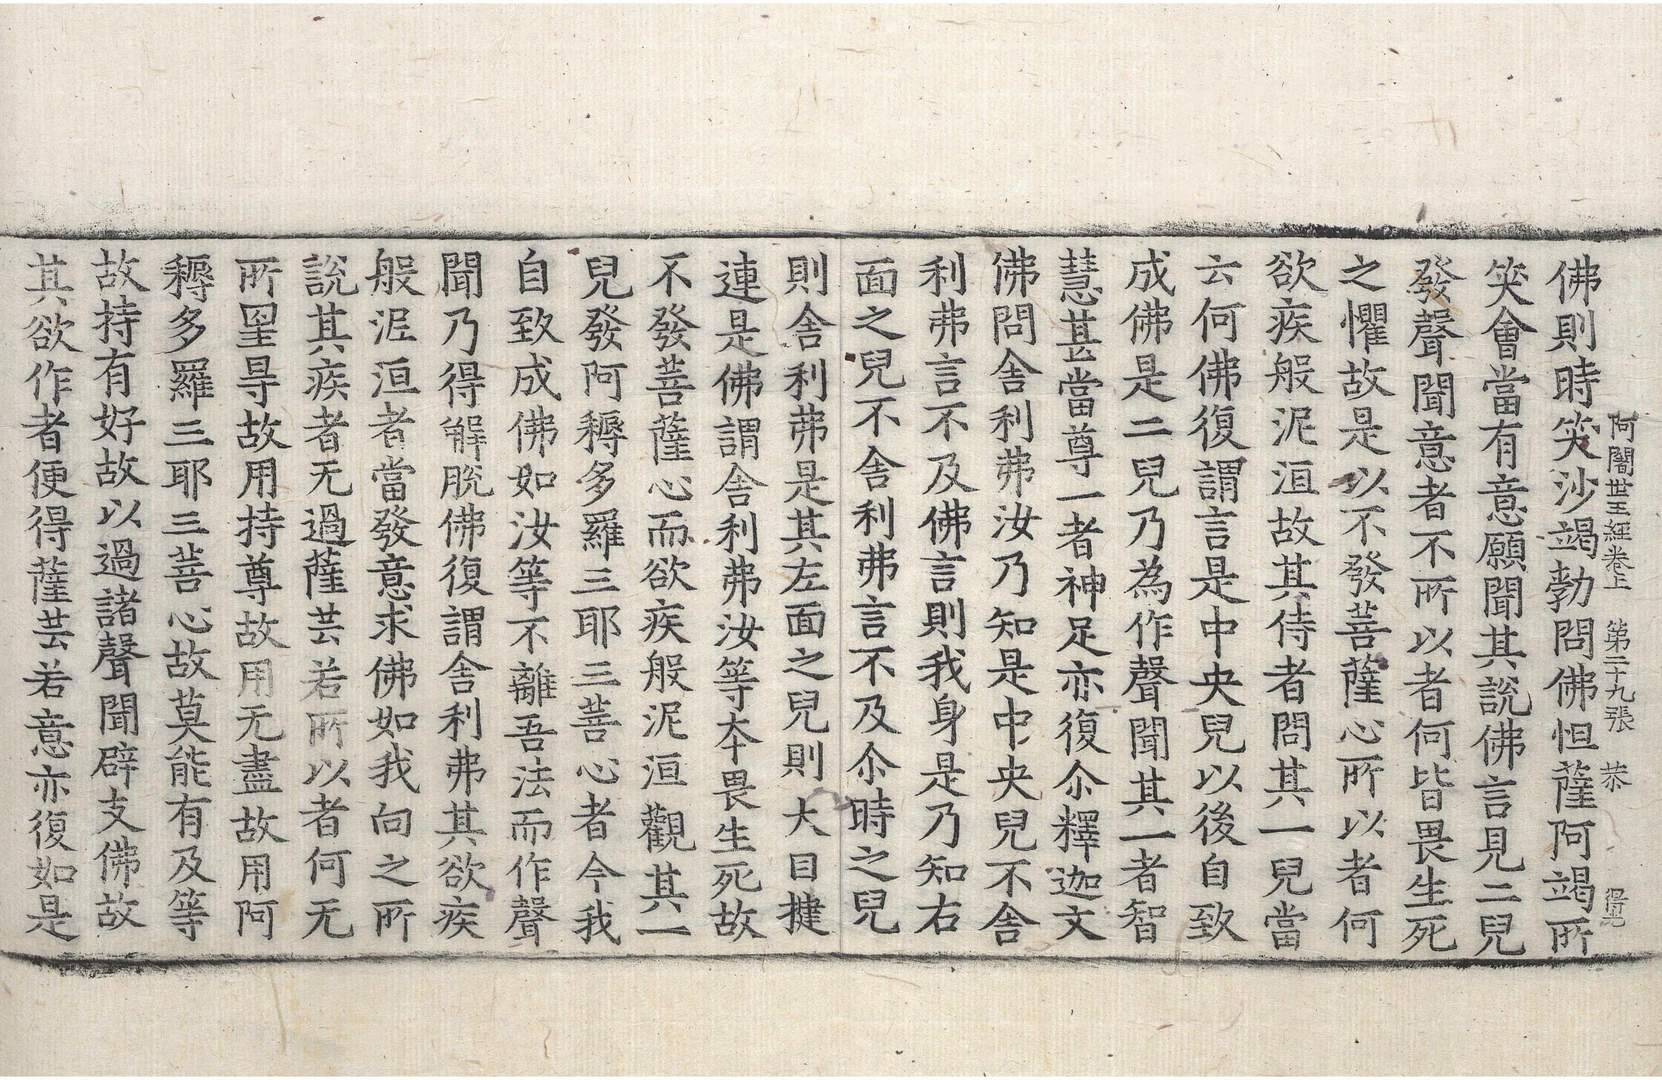 阿闍世王經卷上 第二十九張 恭
佛則時笑沙竭勃問佛怛薩阿竭所
笑會當有意願聞其說佛言見二兒
發聲聞意者不所以者何皆畏生死
之懼故是以不發菩薩心所以者何
欲疾般泥洹故其侍者問其一兒當
云何佛復謂言是中央兒以後自致
成佛是二兒乃為作聲聞其一者智
慧甚當尊一者神足亦復尒釋迦文
佛問舍利弗汝乃知是中央兒不舍
利弗言不及佛言則我身是乃知右
面之兒不舍利弗言不及尒時之兒
則舍利弗是其左面之兒則大目揵
連是佛謂舍利弗汝等本畏生死故
不發菩薩心而欲疾般泥洹觀其一
兒發阿耨多羅三耶三菩心者今我
自致成佛如汝等不離吾法而作聲
聞乃得解脫佛復謂舍利弗其欲疾
般泥洹者當發意求佛如我向之所
說其疾者无過薩芸若所以者何无
所罣㝵故用持尊故用无盡故用阿
耨多羅三耶三菩心故莫能有及等
故持有好故以過諸聲聞辟支佛故
其欲作者便得薩芸若意亦復如是